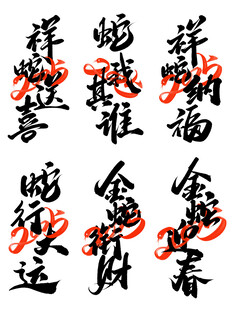 祥蛇送喜
2025
蛇我其谁
2025
祥蛇纳福
2025
蛇行大运
2025
金蛇衔财
2025
金蛇迎春
2025